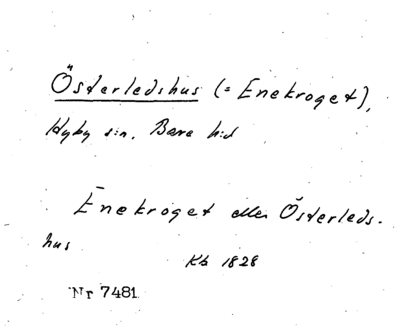 Österledshus (= Enekroget),
Hyby sn, Bara hd
Enekroget eller Österleds-
hus
Kb 1828
Nr 7481.